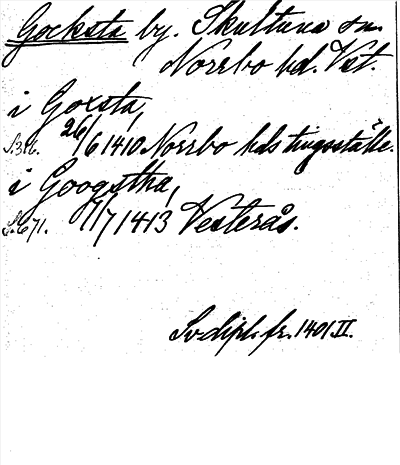 Gocksta by. Skultuna sn.
Norrbo hd. Vst.
i Goxsta,
S. 316. 26/6 1410 Norrbo hds tingsställe.
i Googstha,
S. 671. 7/7 1413 Vesterås.
Sv. dipl. fr. 1401. II.